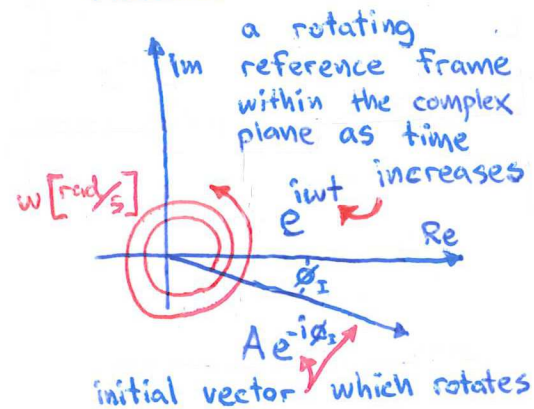 a rotating
Im reference frame
within the complex
plane as time
increases
ω [rad/s]
e^{iωt}
Re
ϕ_I
A e^{-iϕ_I}
initial vector which rotates